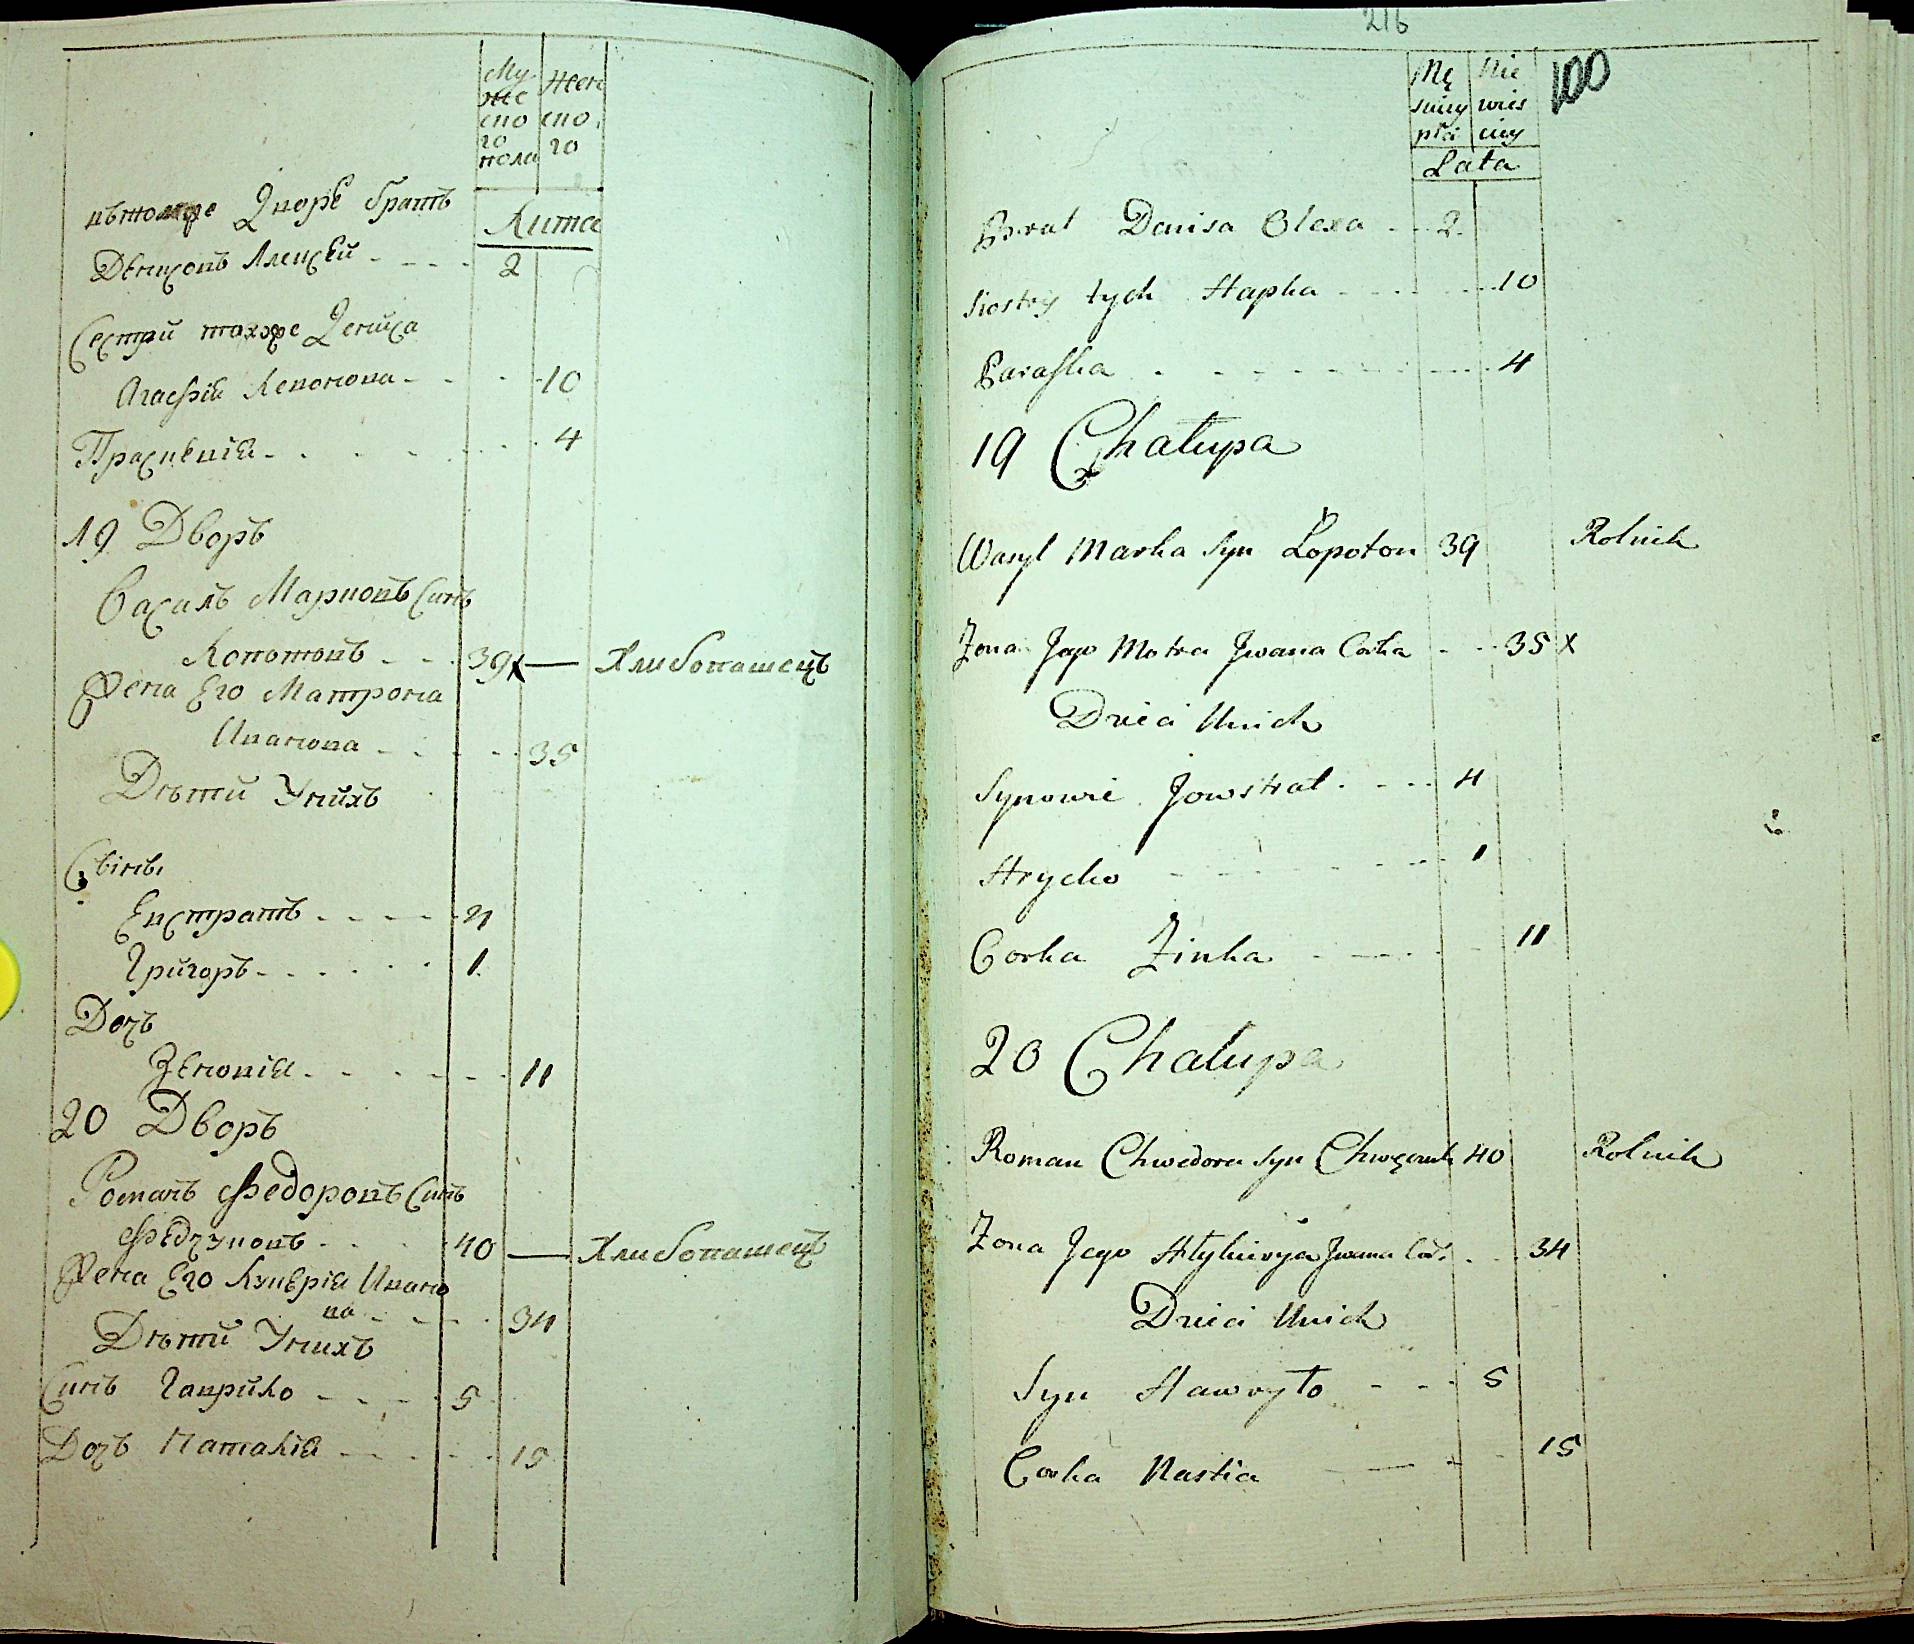 Му
же
ско
го
пола
Жен
ско
го
Лита
Дворѣ братъ
Денисовъ Алеѯѣй - - - - 2
Сестри тохже Дениса
Агафія Леонова - - - 10
Прасковія - - - - - 4
19 Дворъ
Василь Марковъ Синъ
Лопотовъ - - - 39 x — Хлибопашецъ
Жена Его Матрона
Иванова - - - - - 35
Дѣти Унихъ
Сини
Евстратъ - - - - - 4
Григоръ - - - - - - 1
Дочъ
Зѣновія - - - - - - 11
20 Дворъ
Романъ Федоровъ Синъ
40 — Хлибопашецъ
Жена Его Ивано
ва - - - - 34
Дѣти Унихъ
Синъ Гаврило - - - - 5
Дочъ Наталія - - - - - 15
216
100
Mę
skiey
płci
Nie
wies
ciey
Lata
Brat Danisa Olexa - - 2
Siostry tych Hapka - - - - - - 10
Paraska - - - - - - - - 4
19 Chałupa
Wasyl Marka Syn Łopoton 39 Rolnik
Zona Jego Motra Jwana Corka - - - 35 x
Dzieci Unich
Synowie Jowstrat - - - - 4
Hrycko - - - - - - 1
Corka Zinka - - - - 11
20 Chałupa
Roman Chwedora Syn 40 Rolnik
Zona Jego Jwana Cor: - - - 34
Dzieci Unich
Syn Hawryło - - - 5
Corka Nastia - - - - 15